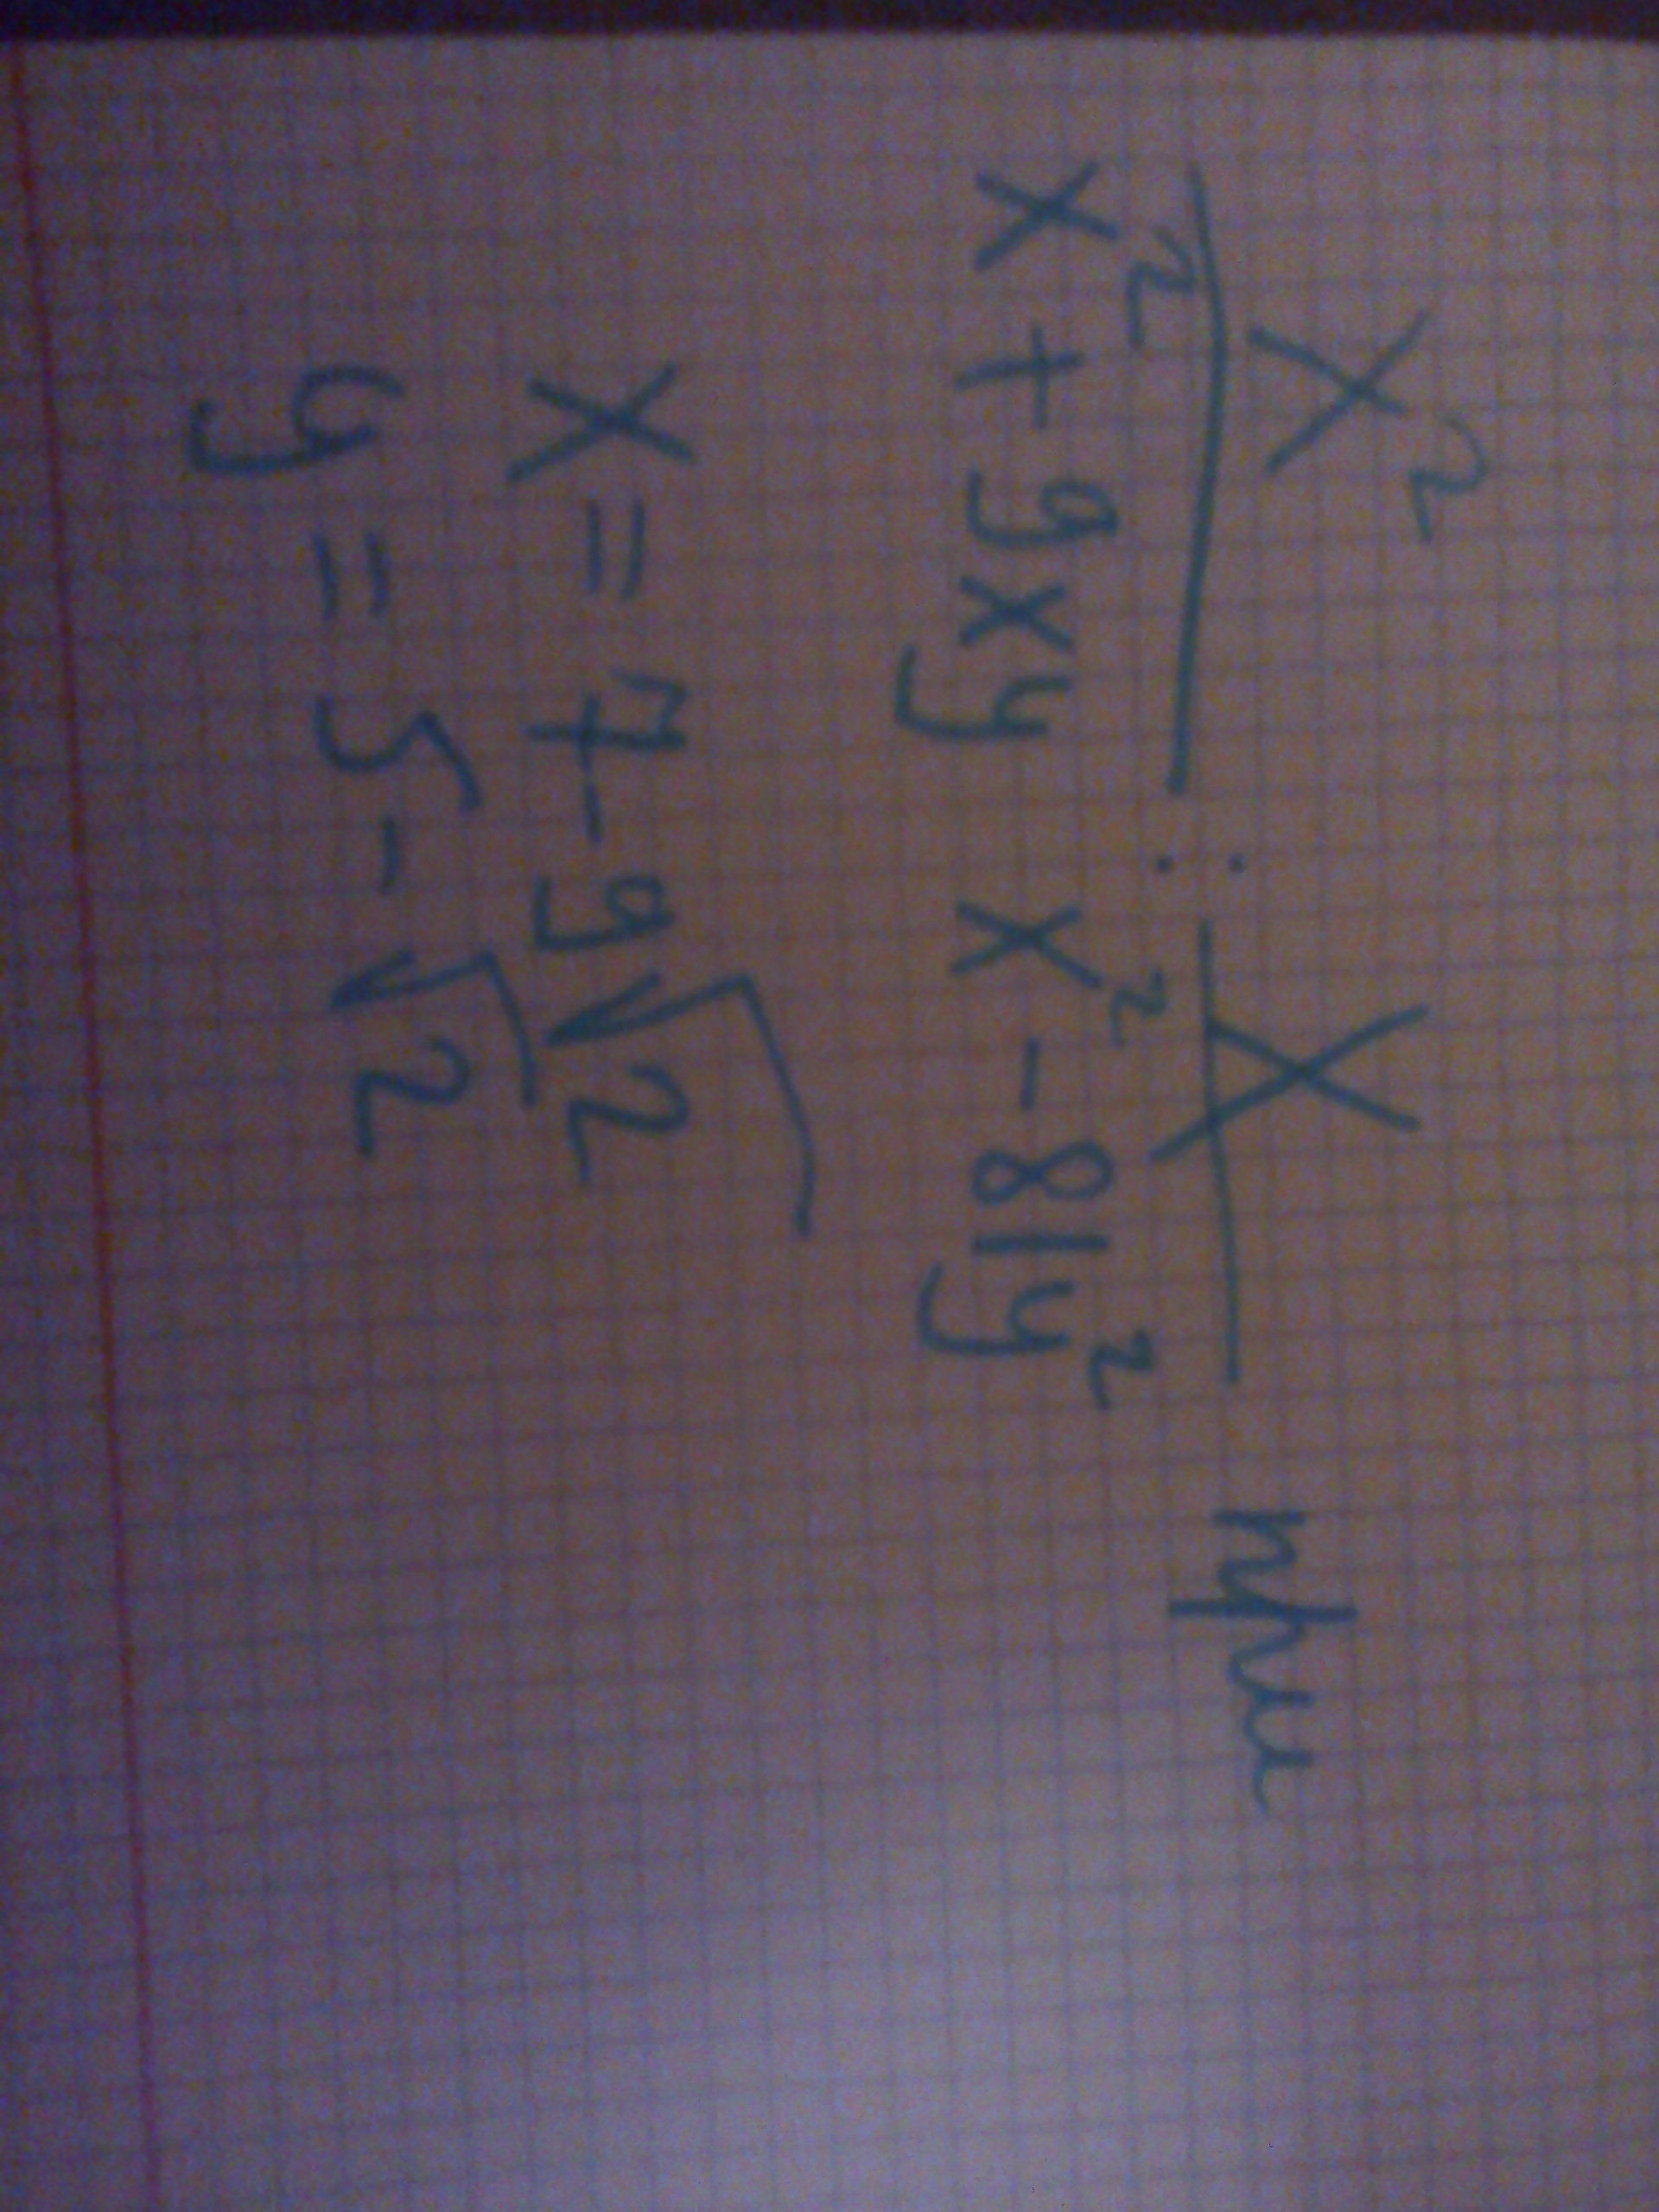 x²/(x² + 9xy) : x/(x² - 81y²) при
x = 7 - 9√2
y = 5 - √2